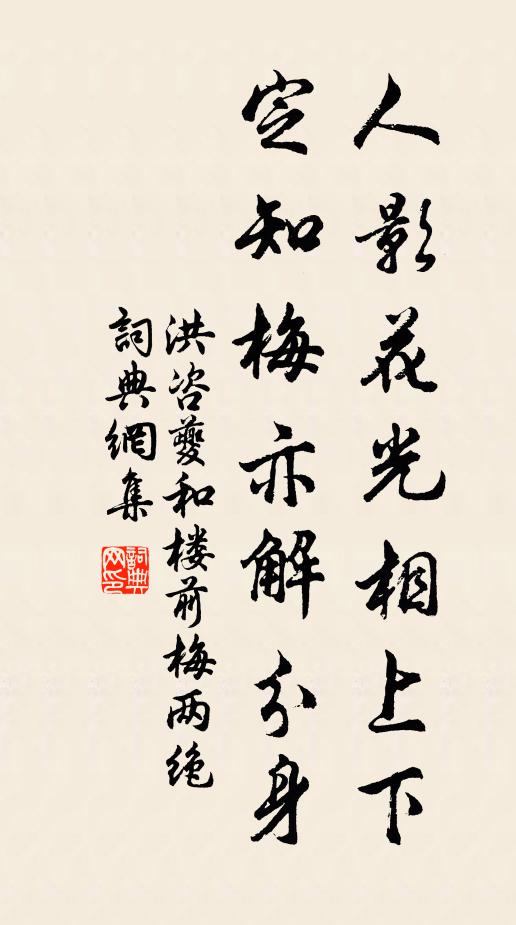 人影花光相上下
定知梅亦解分身
洪咨夔和楼前梅两绝
詞典網集
詞典网印